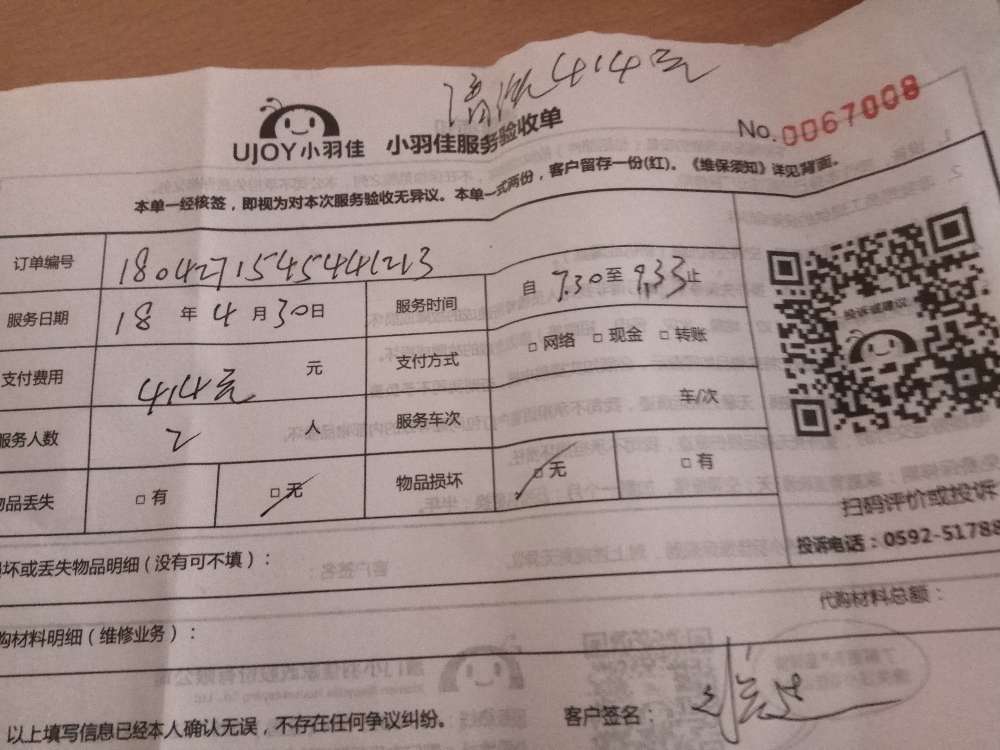 414元
UJOY小羽佳 小羽佳服务验收单
No.0067008
本单一经核签，即视为对本次服务验收无异议。本单一式两份，客户留存一份(红)。《维保须知》详见背面。
订单编号 18042715454412​13
服务日期 18 年 4 月 30 日 服务时间 自 7.30 至 9.33 止
支付费用 414元 元 支付方式 □网络 □现金 □转账
服务人数 2 人 服务车次 车/次
物品丢失 □有 □无 物品损坏 □无 □有
投诉或建议
扫码评价或投诉
投诉电话：0592-51788
坏或丢失物品明细（没有可不填）：
购材料明细（维修业务）： 代购材料总额：
以上填写信息已经本人确认无误，不存在任何争议纠纷。 客户签名：